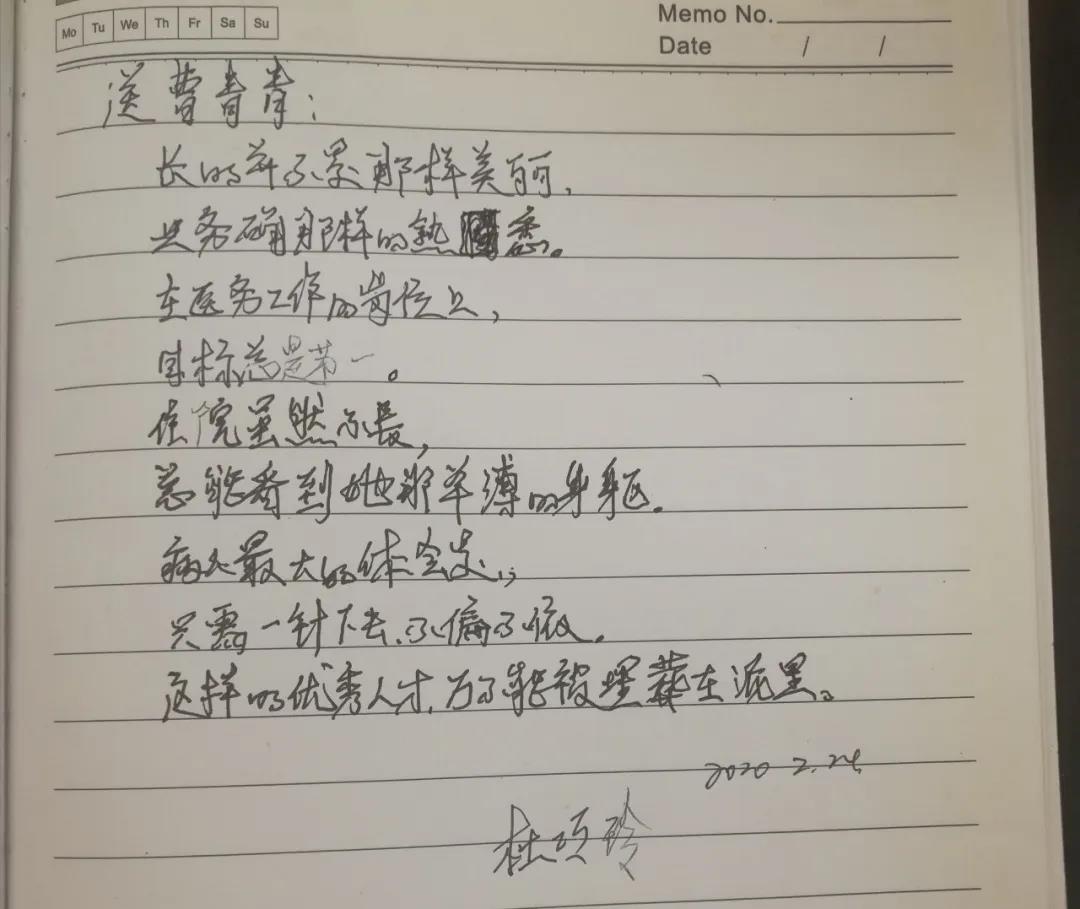 Mo Tu We Th Fr Sa Su
Memo No.
Date / /
送曹青青:
长的并不累那样美丽,
业务确那样的熟悉。
在医务工作的岗位上,
目标总是第一。
住院虽然不长,
总能看到她那单薄的身躯.
病人最大的体会是,
只需一针下去、不偏不依.
这样的优秀人才,万不能被埋葬在泥里。
2020 2.24.
杜 玲